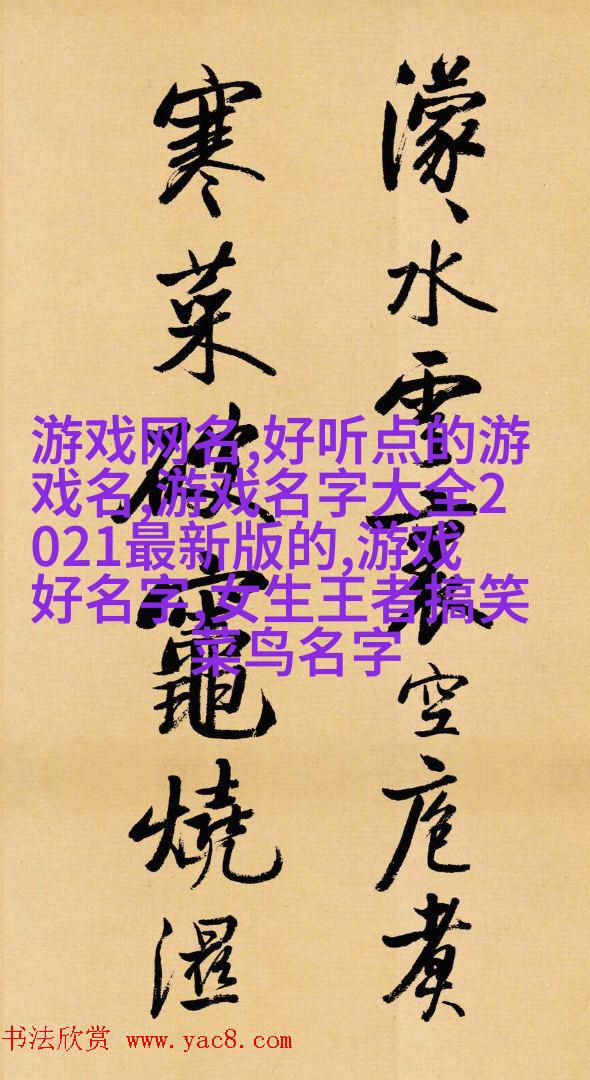 濛々水雲裏空庖煮
寒菜破竈燒濕
游戏网名,好听点的游
戏名,游戏名字大全2
021最新版的,游戏
好名字,女生王者搞笑
菜鸟名字
书法欣赏 www.yac8.com